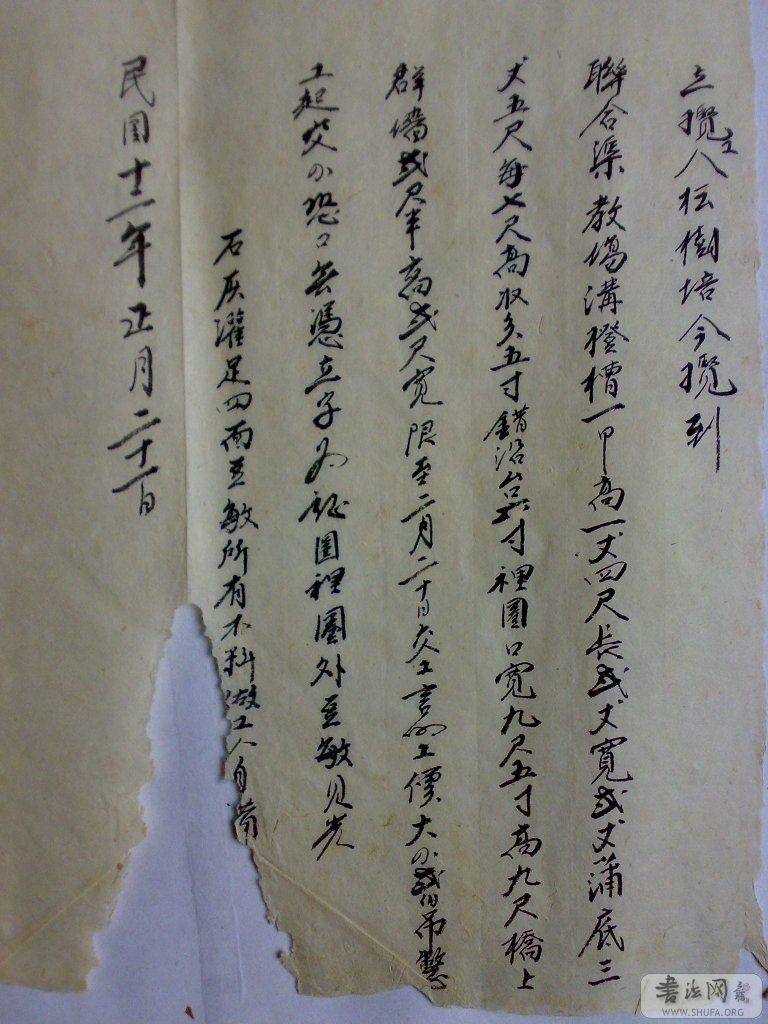 立攬主人杜樹培今攬到
聯合渠教場溝橙槽一甲高一丈四尺長弍丈寬弍丈蒲底三
丈五尺每七尺高收分五寸錯沿台六寸裡圈口寬九尺五寸高九尺橋上
群墻弍尺半高弍尺寬限至二月二十日交工言明工價大小弍百吊整
工起交小恐口無憑立字為証圈裡圈外至敏見光
石灰灌足四面至敏所有木料做工人自備
民国十二年正月二十一日
書法网
WWW.SHUFA.ORG